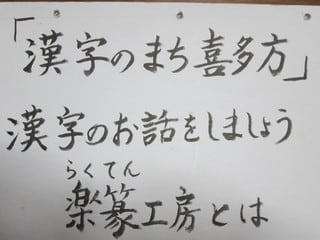 「漢字のまち喜多方」
漢字のお話をしましょう
らくてん
楽篆工房とは